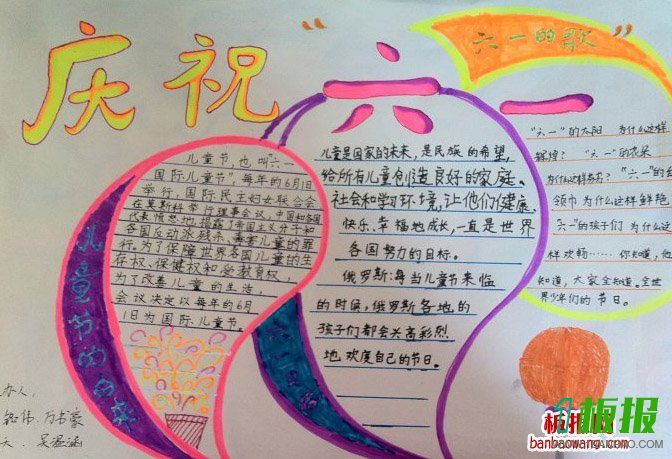 庆祝“六一”
“六一的歌”
儿童节,也叫“六一
国际儿童节”每年的6月1日
举行,国际民主妇女联合会
在莫斯科举行理事会议,中国和各国
代表愤怒地揭露了帝国主义分子和
各国反动派残杀、毒害儿童的罪
行.为了保障世界各国儿童的生
存权、保健权和受教育权,
为了改善儿童的生活
会议决定以每年的6月
1日为国际儿童节。
儿童节的由来
儿童是国家的未来,是民族的希望,
给所有儿童创造良好的家庭、
社会和学习环境,让他们健康、
快乐、幸福地成长,一直是世界
各国努力的目标。
俄罗斯:每当儿童节来临
的时候,俄罗斯各地的
孩子们都会兴高彩烈
地欢度自己的节日。
“六一”的太阳 为什么这样
辉煌? “六一”的花朵
为什么这样多 “六一”的
领巾 为什么这样鲜艳
“六一”的孩子们 为什么这
样欢畅…… 你知道,他
知道,大家全知道。全世
界少年们的节日。
办人:
万书豪
板报网
banbaowang.com
板报